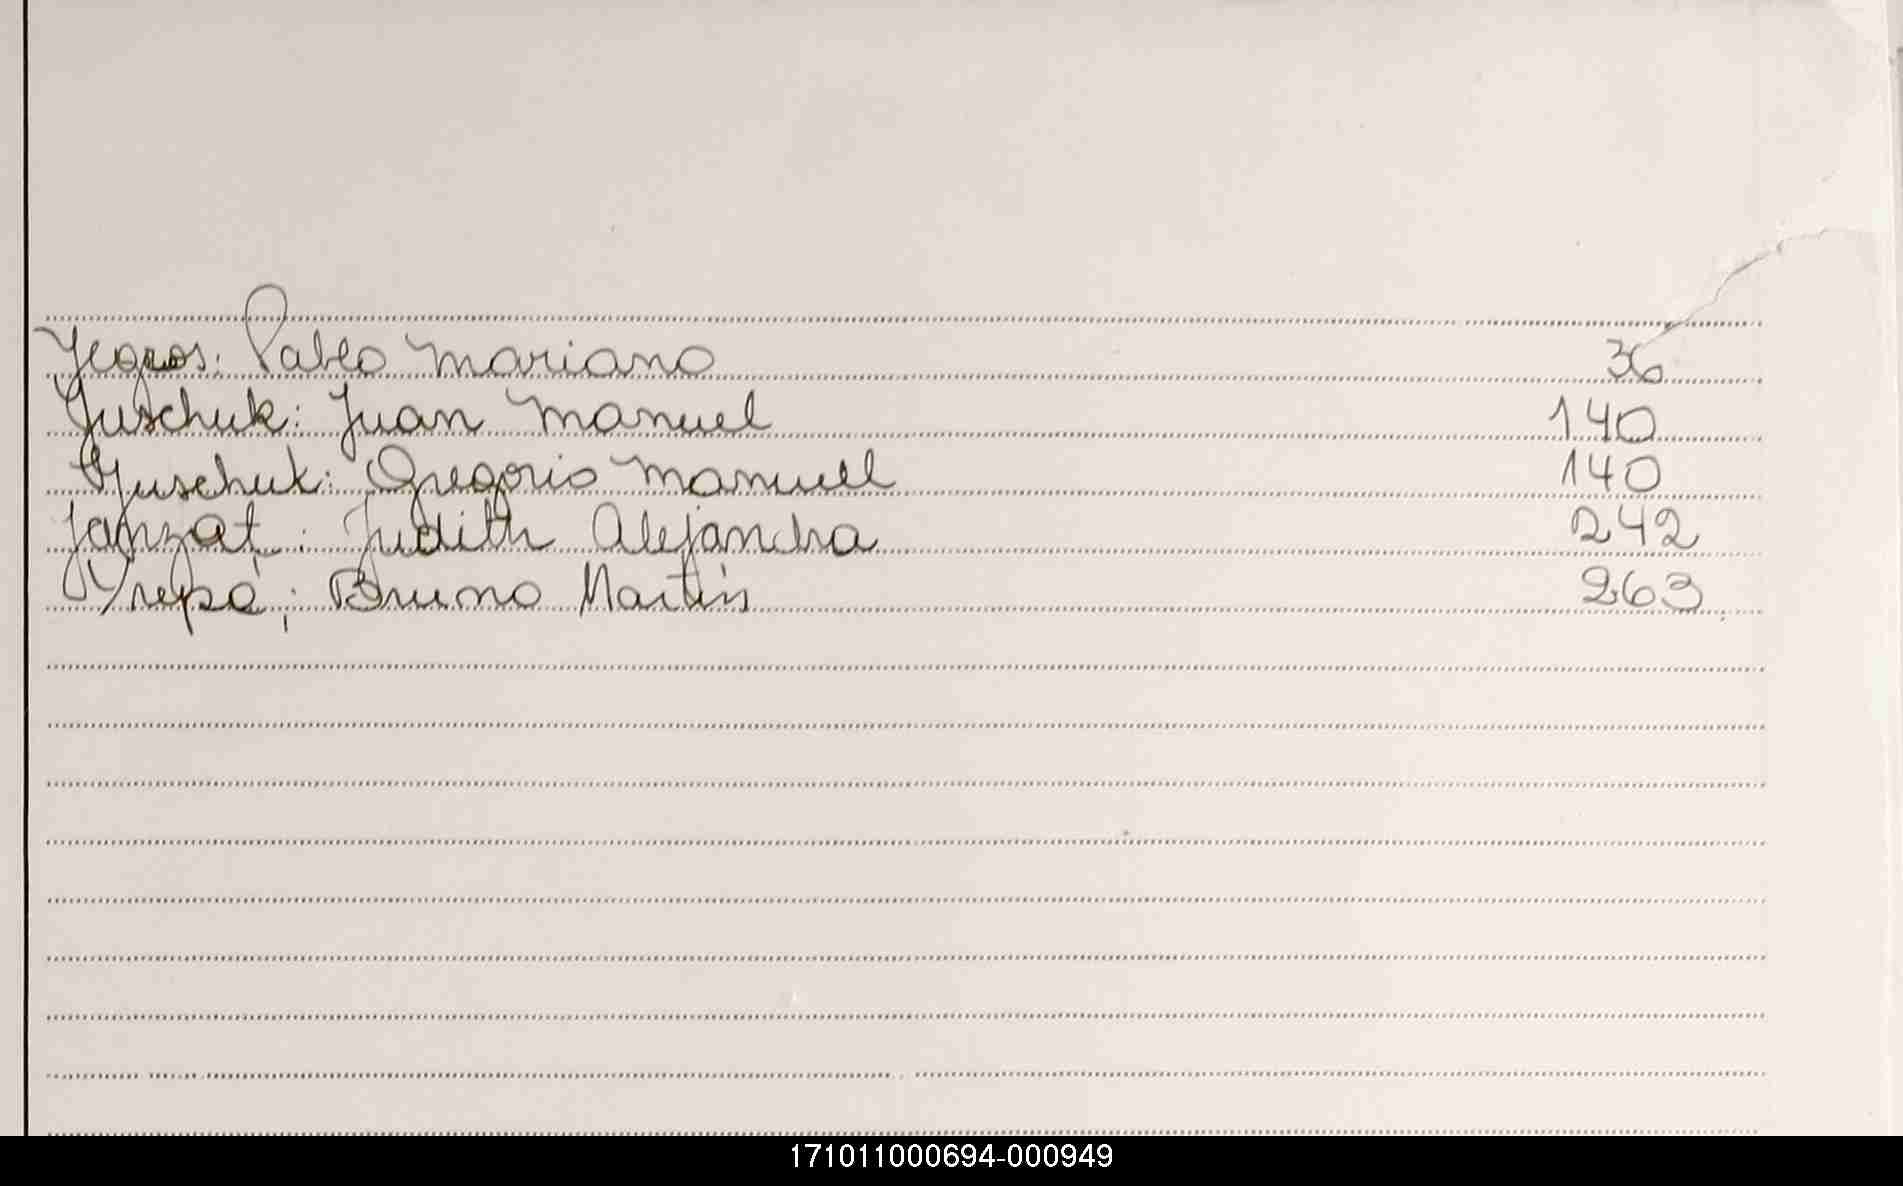 Yegros: Pablo Mariano 36
Yuschuk: Juan Manuel 140
Yuschuk: Gregorio Manuel 140
Yanzat: Judith Alejandra 242
Yrepa; Bruno Martin 263
171011000694-000949